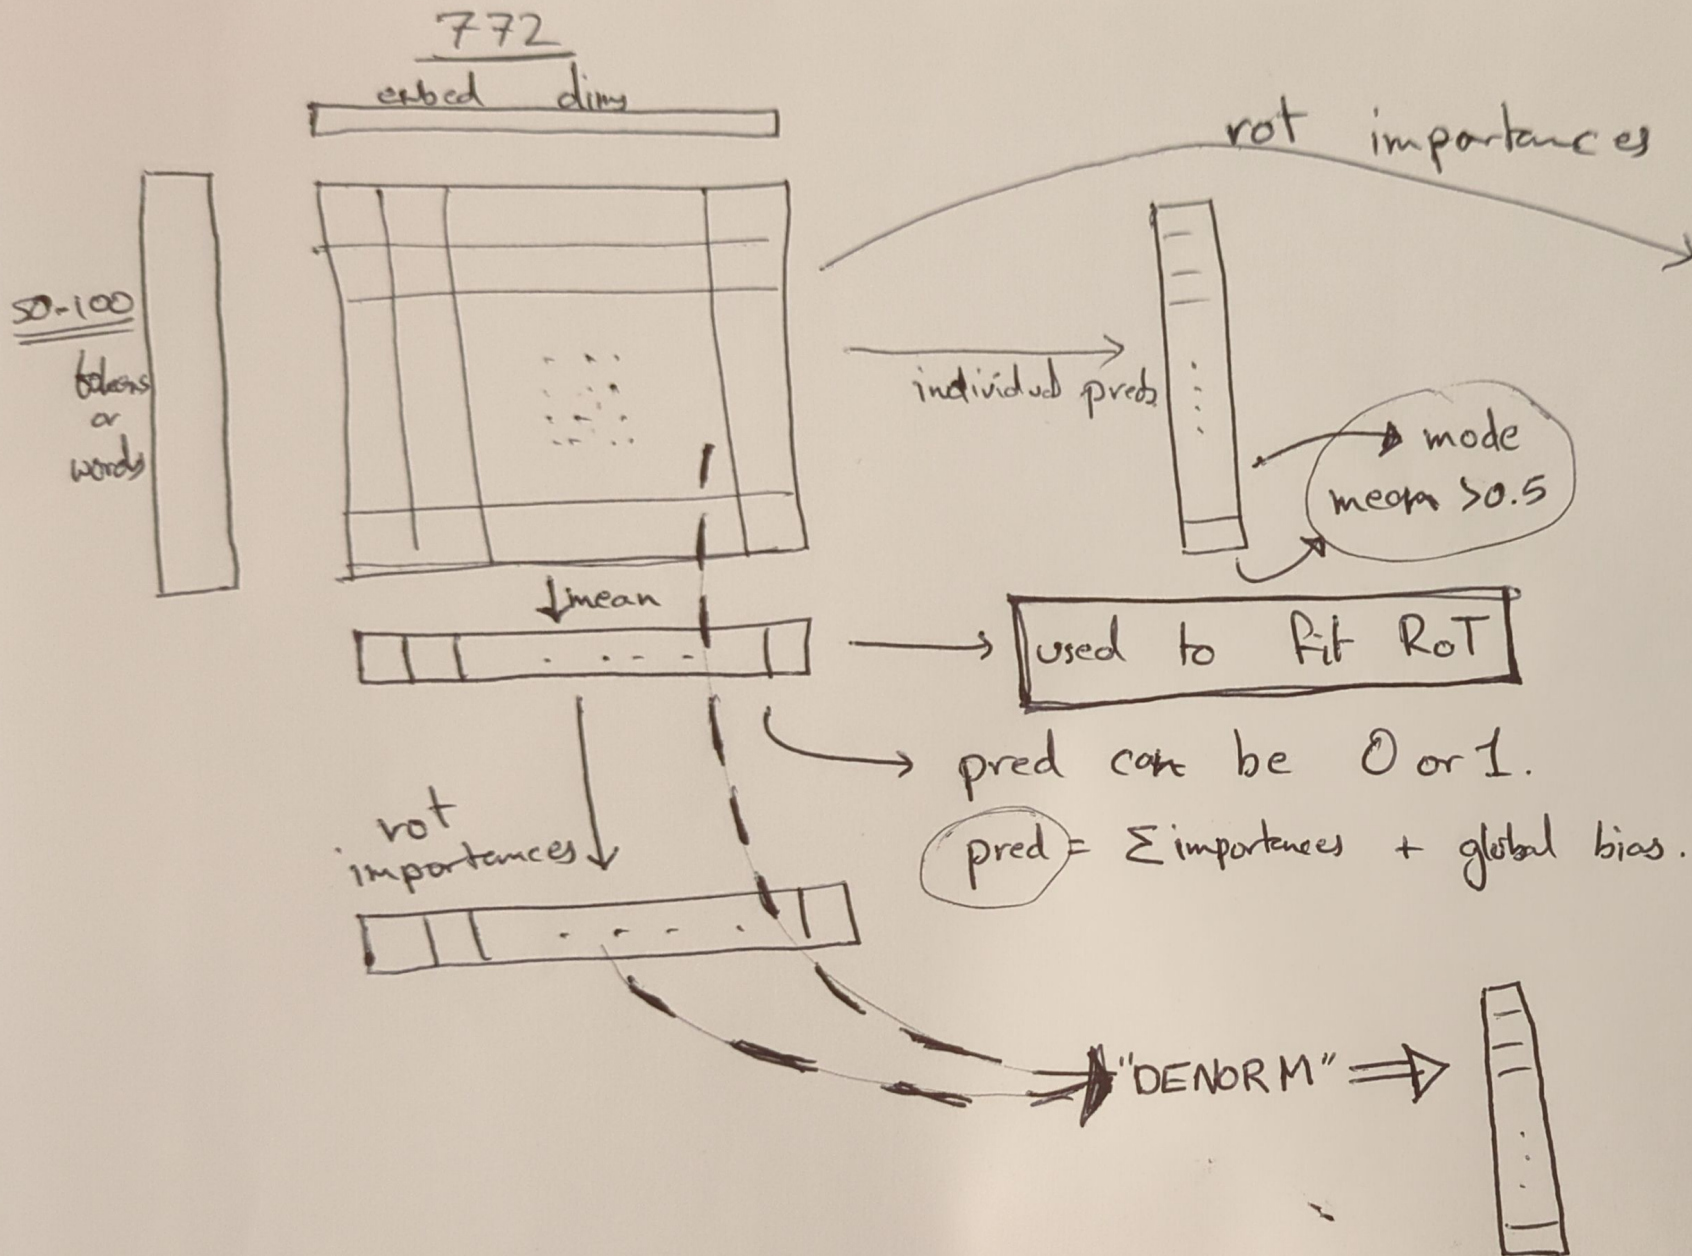 772
embed dims
rot importances
50-100
tokens
or
words
individual preds
mode
mean >0.5
↓mean
used to fit RoT
pred can be 0 or 1.
rot
importances
pred = Σ importances + global bias.
"DENORM"